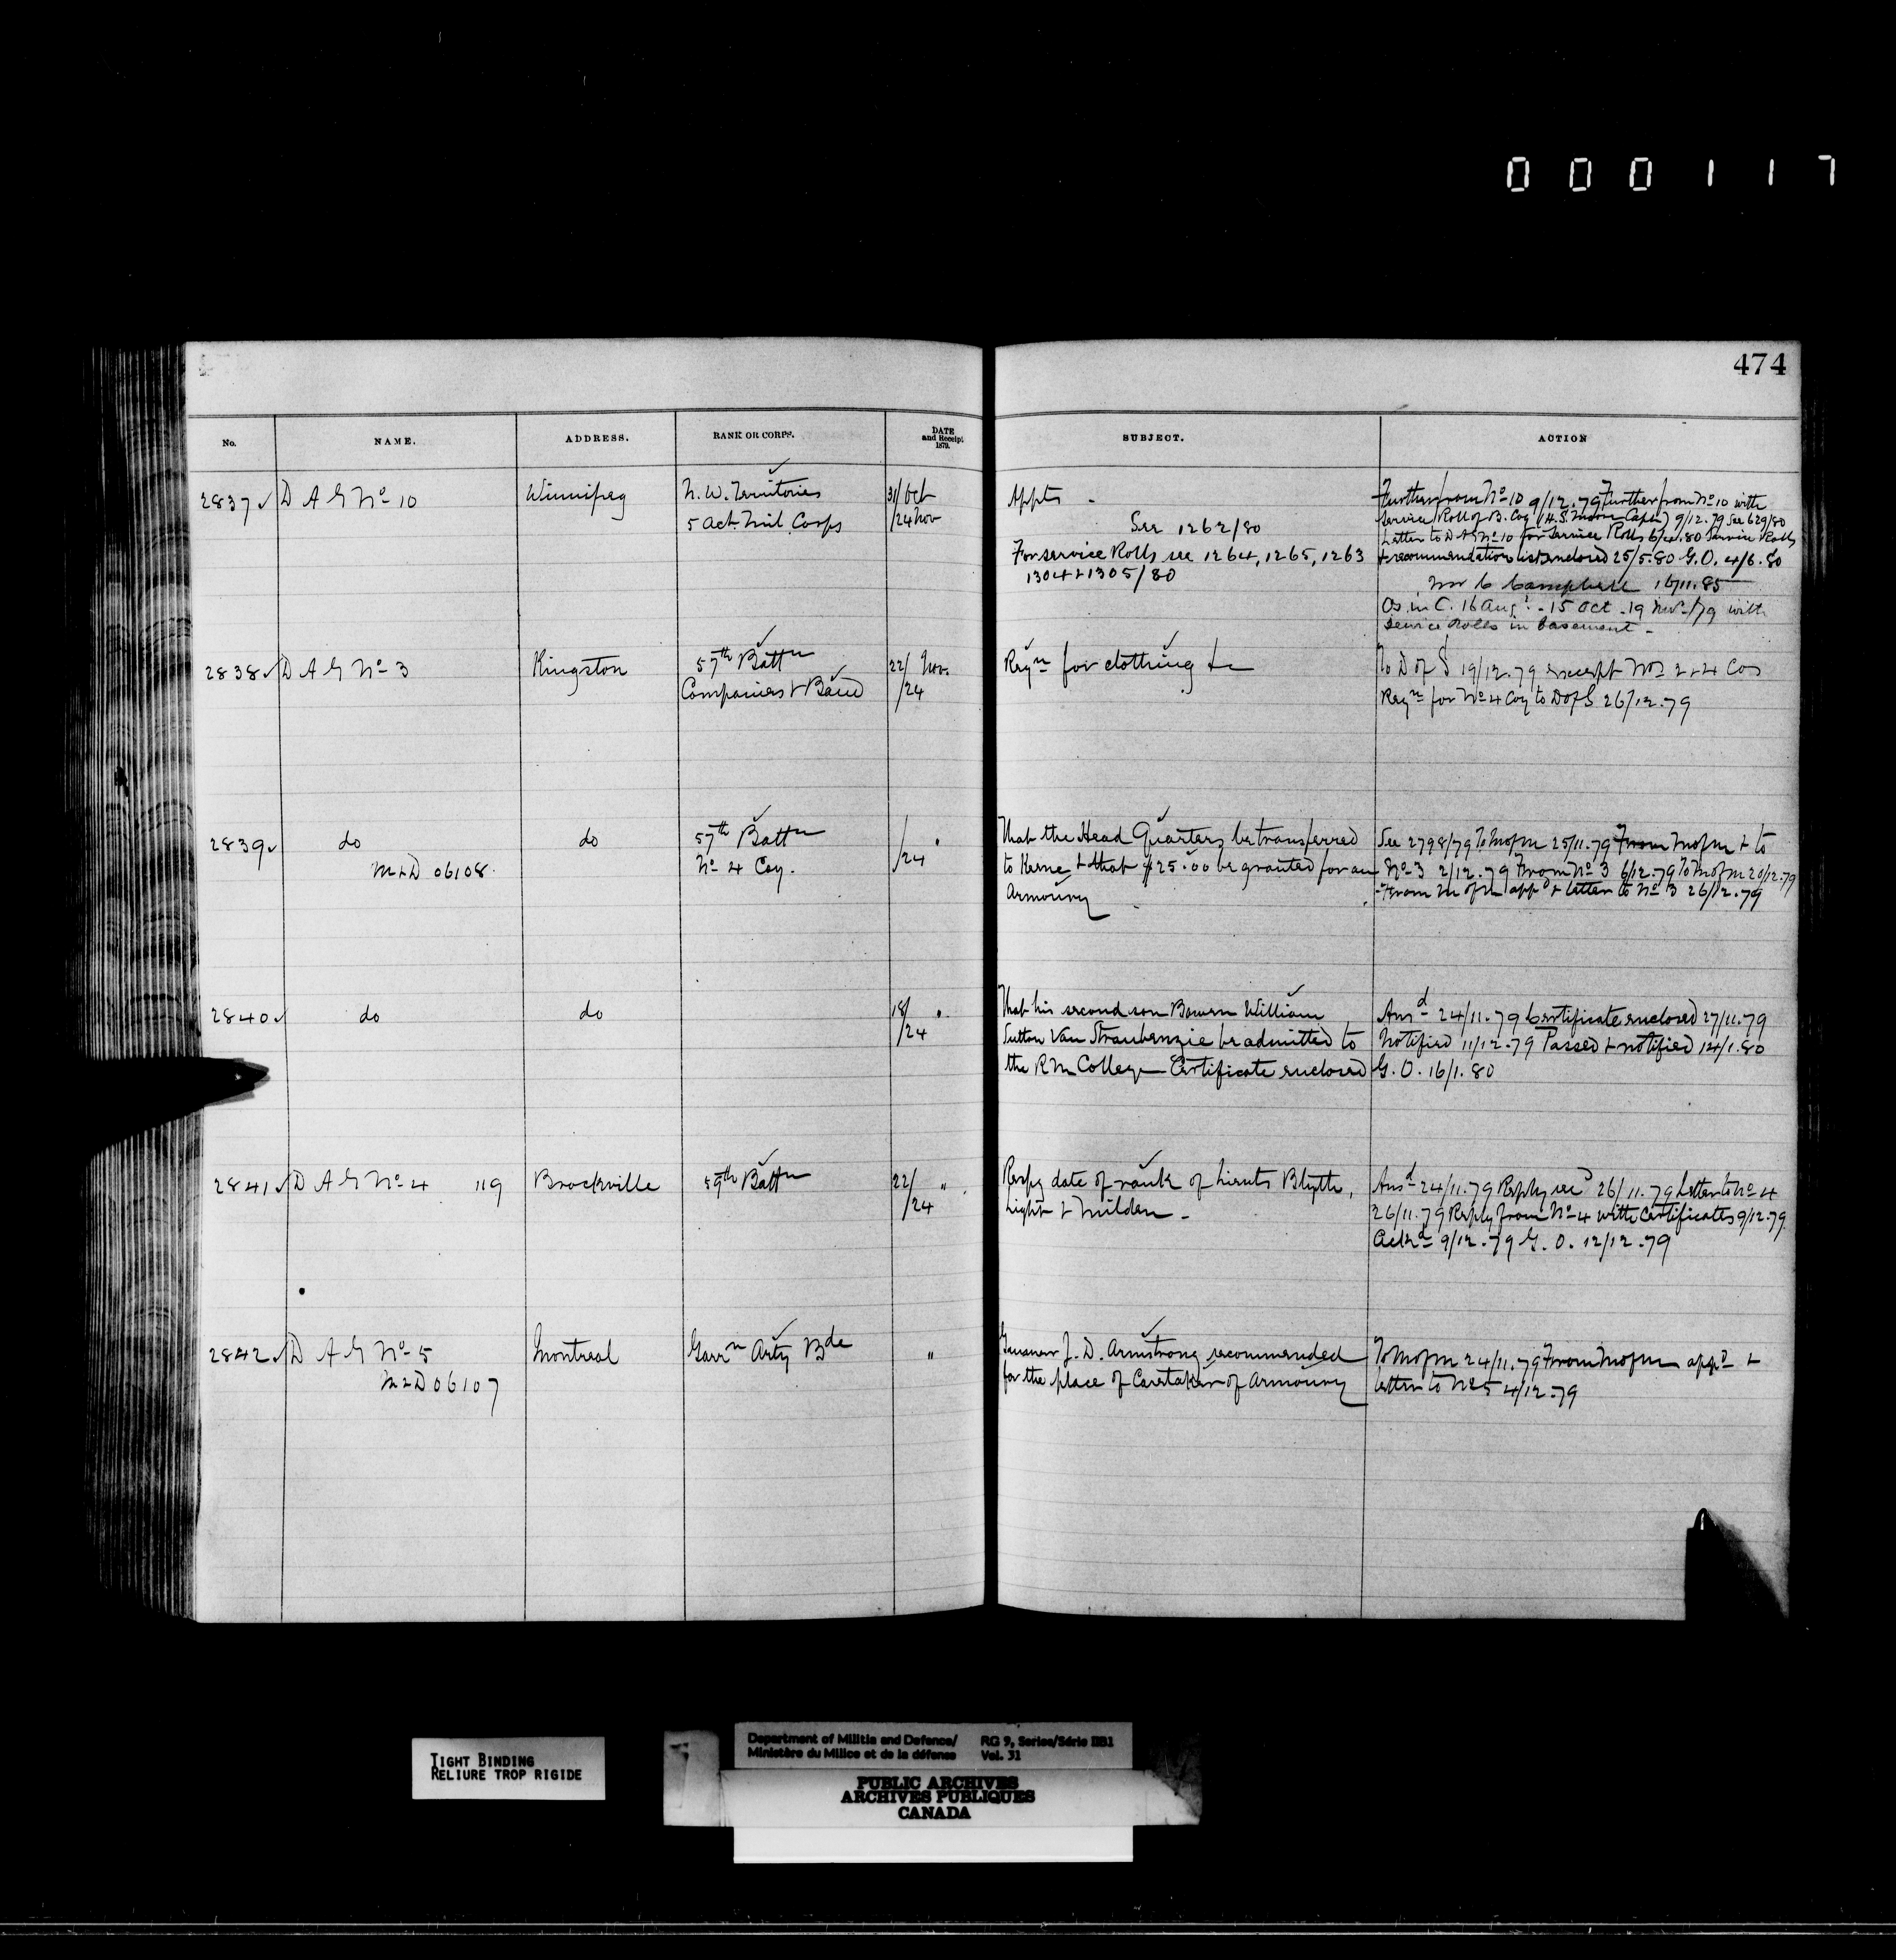 000117
474
No. NAME. ADDRESS. RANK OR CORPS. DATE and Receipt 1879. SUBJECT. ACTION
2837 D A G No 10 Winnipeg N. W. Territories 31/Oct Appts - Further from No 10 9/12.79 Further from No 10 with
5 Act. Mil Corps /24 Nov See 1262/80 Service Roll of B. Coy (H.S. Moore Capt) 9/12.79 See 629/80
Letter to D A G No 10 for Service Rolls 6/4.80 Service Rolls
For service Rolls see 1264, 1265, 1263 + recommendation list enclosed 25/5.80 G.O. 4/6.80
1304 + 1305/80 Campbell 16/11.85
Os. in C. 16 Augt - 15 Oct - 19 Nov /79 with
Service Rolls in basement -
2838 D A G No 3 Kingston 57th Battn 22/ Nov. Reqn for clothing &c To D of S 19/12.79 except Nos 2 + 4 Cos
Companies + Band /24 Reqn for No 4 Coy to D of S 26/12.79
2839 do do 57th Battn / " That the Head Quarters be transferred See 2798/79 To M of M 25/11.79 From M of M + to
M + D 06108. No 4 Coy. /24 to Kerne + that $25.00 be granted for an No 3 2/12.79 From No 3 6/12.79 To M of M 20/12.79
Armoury From M of M appd + letter to No 3 26/12.79
2840 do do 18/ " That his second son Bowen William Ansd 24/11.79 Certificate enclosed 27/11.79
/24 Sutton Van Straubenzie be admitted to Notified 11/12.79 Passed + notified 14/1.80
the R M College - Certificate enclosed G. O. 16/1.80
2841 D A G No 4 119 Brockville 59th Battn 22/ " Respg date of rank of Lieuts Blyth, Ansd 24/11.79 Reply recd 26/11.79 Letter to No 4
/24 Light + Milden - 26/11.79 Reply from No 4 with Certificates 9/12.79
Ackd 9/12.79 G. O. 12/12.79
2842 D A G No 5 Montreal Garrn Arty Bde " Gunner J. D. Armstrong recommended To M of M 24/11.79 From M of M appd +
M + D 06107 for the place of Caretaker of Armoury letter to No 5 4/12.79
TIGHT BINDING
RELIURE TROP RIGIDE
Department of Militia and Defence/ RG 9, Series/Série IIB1
Ministère du Milice et de la défense Vol. 31
PUBLIC ARCHIVES
ARCHIVES PUBLIQUES
CANADA